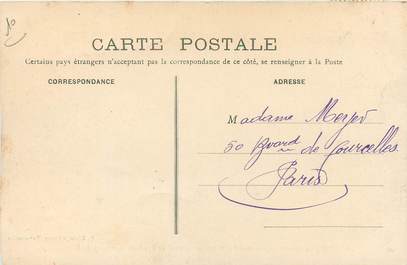 CARTE POSTALE
Certains pays étrangers n'acceptant pas la correspondance de ce côté, se renseigner à la Poste
CORRESPONDANCE
ADRESSE
Madame
50 de Courcelles
Paris